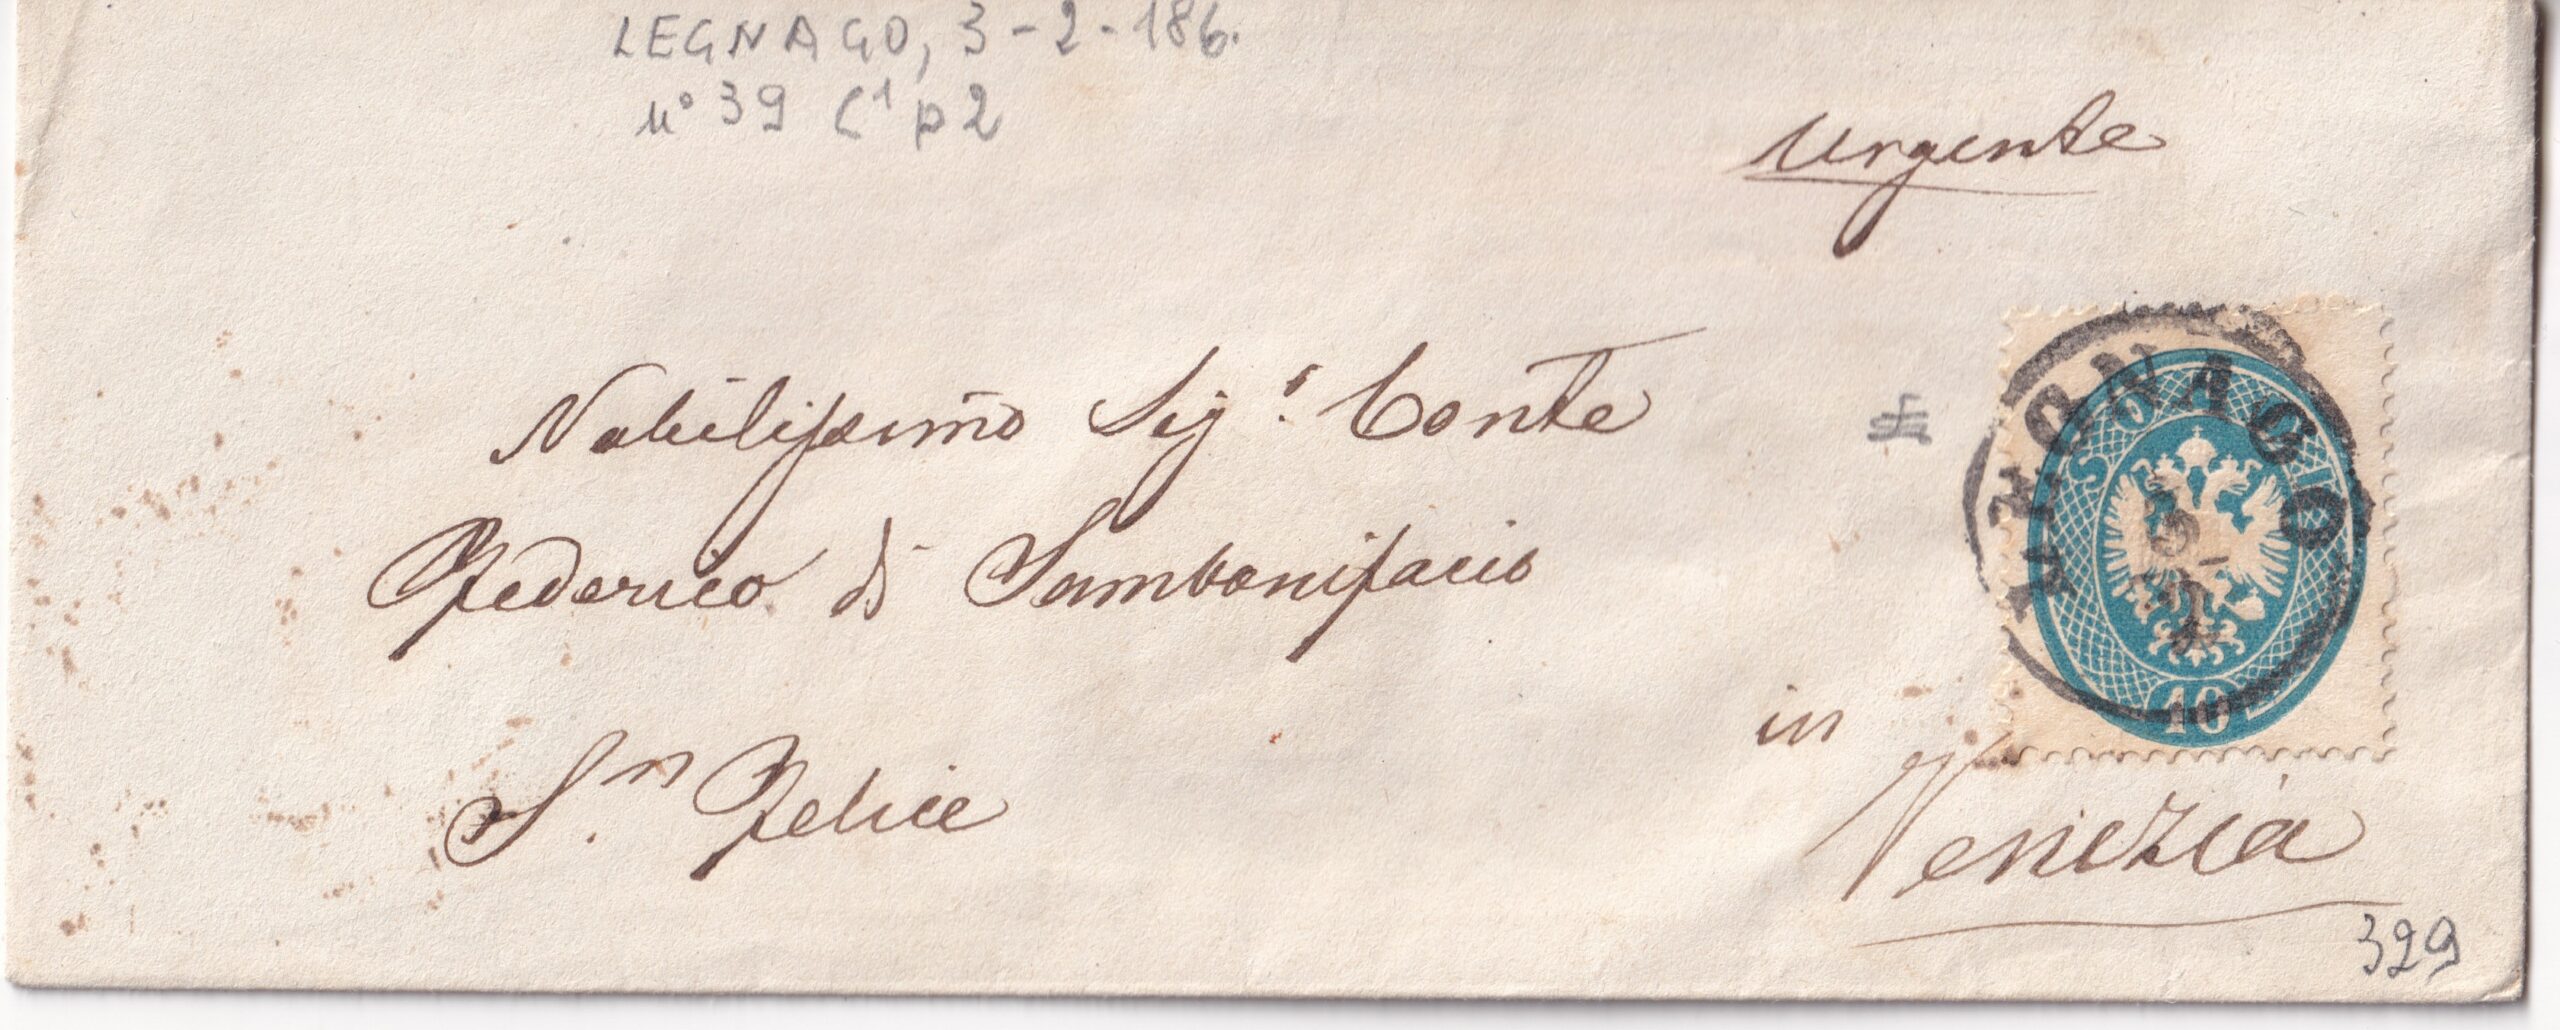 LEGNAGO, 3-2-186.
n° 39 C¹ p2
Urgente
Nobilissimo Sig.r Conte
Federico di Sambonifacio
S.n Felice
in
Venezia
SOLDI
10
3
2
329